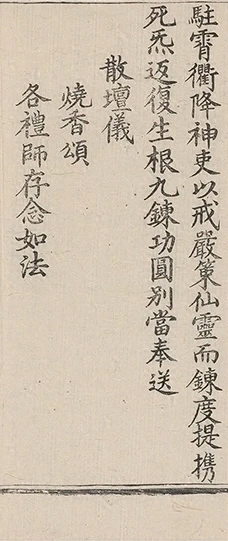 駐霄衢降神吏以戒嚴策仙靈而鍊度提携
死炁返復生根九鍊功圓別當奉送
散壇儀
燒香頌
各禮師存念如法